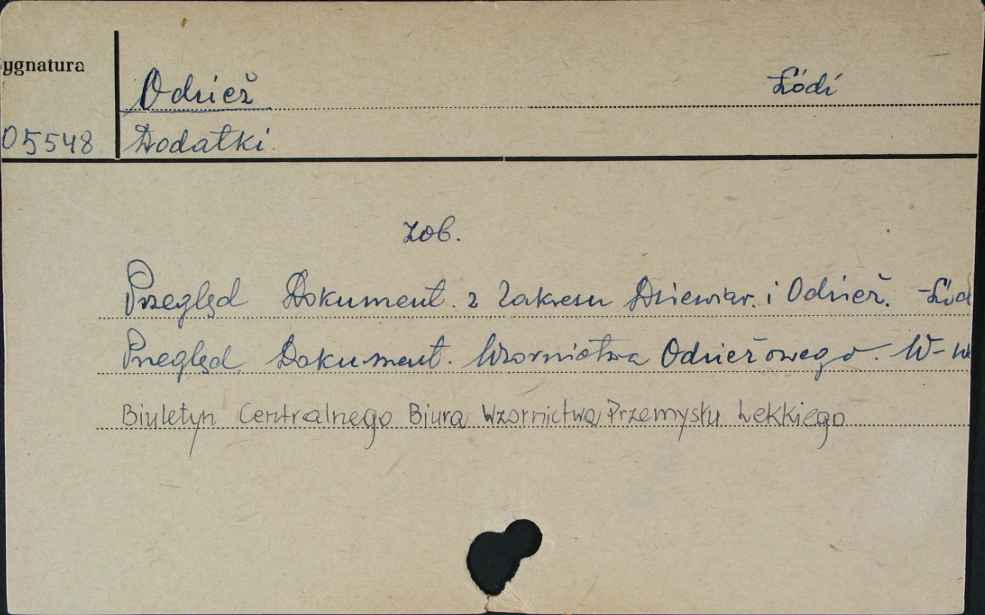 ygnatura
Odzież Łódź
05548 Dodatki.
zob.
Przegląd Dokument. z Zakresu Dziewiar. i Odzież. Łód
Przegląd Dokument. Wzornictwa Odzieżowego. W-w
Biuletyn Centralnego Biura Wzornictwa Przemysłu Lekkiego